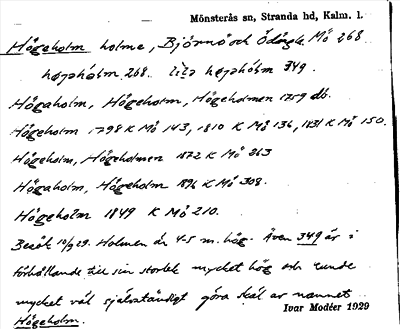 Mönsterås sn, Stranda hd, Kalm. l.
Högeholm holme, Björnö och Ödängla Mö 268
høgahólm 268. lila høgahólm 349.
Högaholm, Högeholm, Högeholmen 1759 db.
Högeholm 1798 K Mö 143, 1810 K Mö 136, 1831 K Mö 150.
Högeholm, Högeholmen 1872 K Mö 263
Högaholm, Högeholm 1896 K Mö 308.
Högeholm 1849 K Mö 210.
Besök 10/9 29. Holmen är 4-5 m. hög. Även 349 är i
förhållande till sin storlek mycket hög och kunde
mycket väl självständigt göra skäl av namnet
Högeholm.
Ivar Modéer 1929